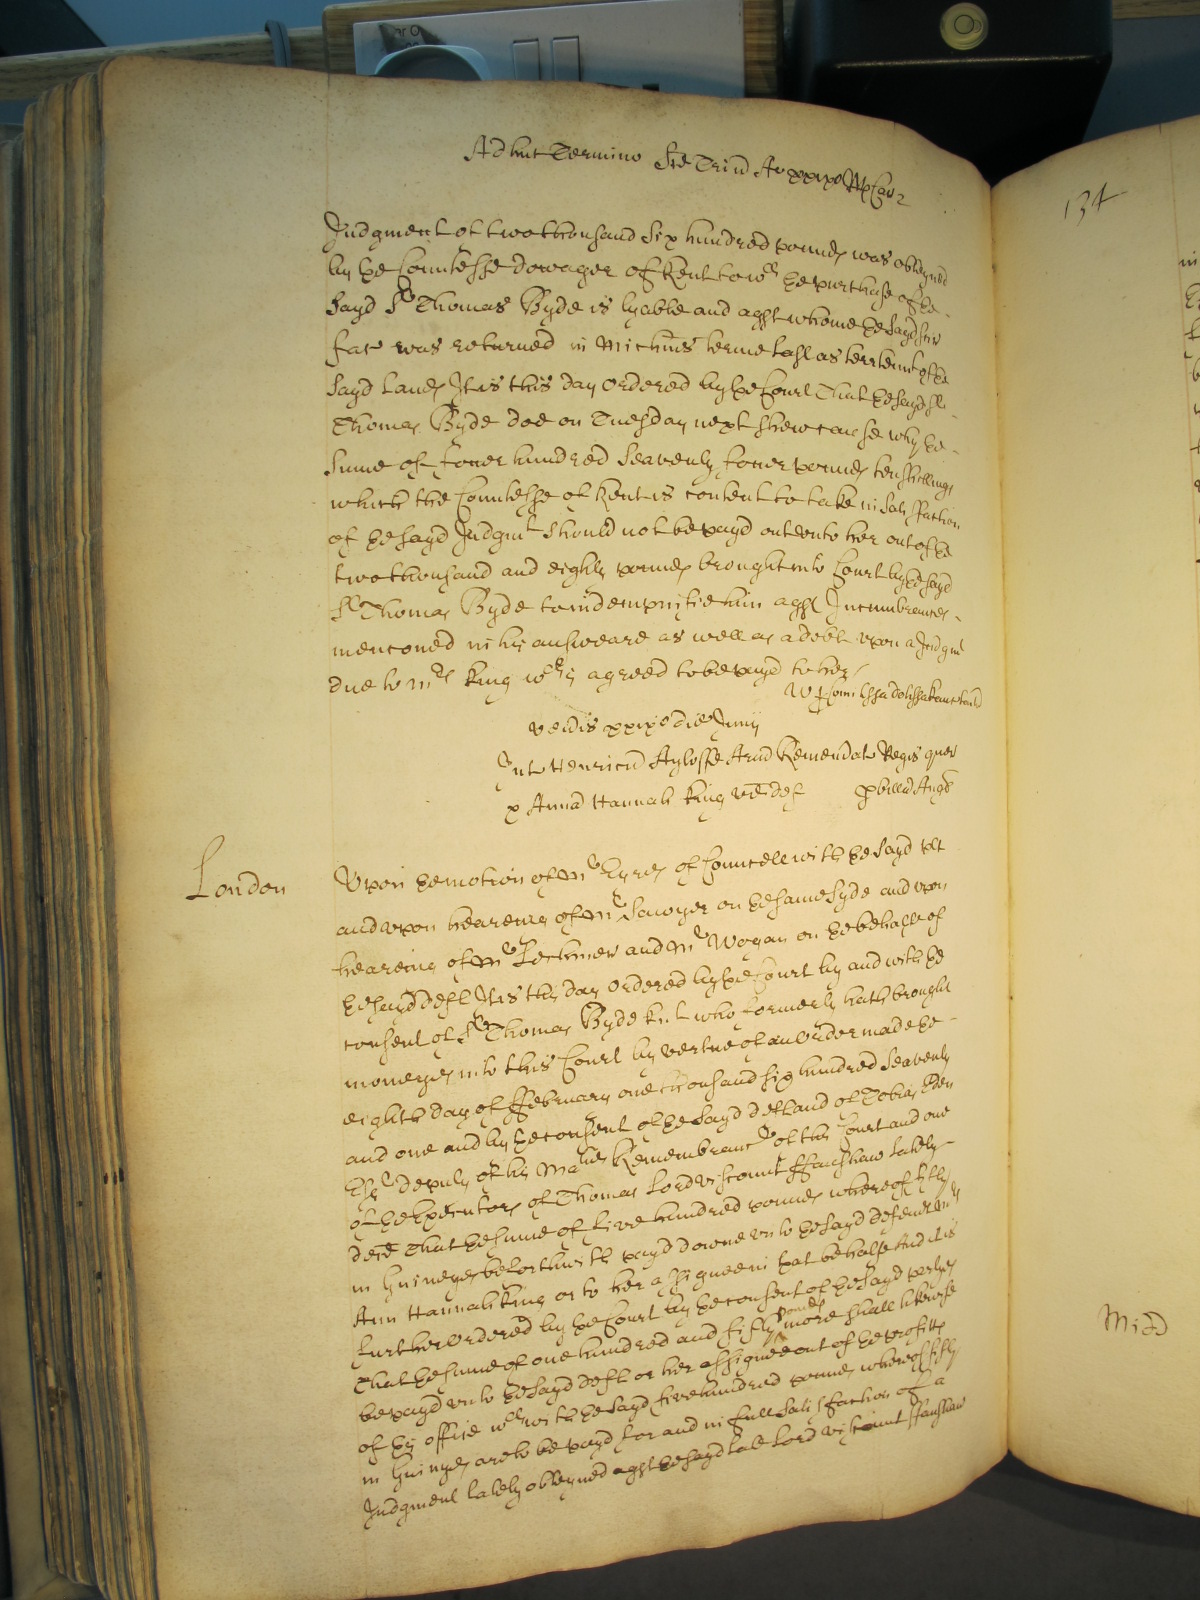 Adhuc Termino Ste Trin Ao xxixo Rx Car 2
134
Judgment of two thousand six hundred pounds was obteyned
by ye Countesse dowager of Kent to wch ye purchase of ye
sayd Sr Thomas Byde is lyable and agst whome ye sayd Scire
fac was returned in Michms terme last as terrtenint of ye
sayd Lands It is this day Ordered by ye Court That ye sayd Sr
Thomas Byde doe on Tuesday next shew cause why ye
sume of fower hundred seaventy fower pounds ten shillings
which the Countesse of Kent is content to take in satisfaction
of ye sayd Judgmt should not be payd out vnto her out of ye
two thousand and eighty pounds brought into Court by ye sayd
Sr Thomas Byde to indempnifie him agst Incumbrances
menconed in his answeare as well as a debt vpon a Judgmt
due to mrs King wch is agreed to be payd to her
veneris xxixo die Junij
Int Henricu Ayloffe Arm Rememdator Regis quer
x Anna Hannah King vid def p billa Angl
London
Vpon ye motion of mr Eyres of Councell with ye sayd plt
and vpon heareing of mr Sawyer on ye same syde and vpon
heareing of mr Lechmer and mr Wogan on ye behalfe of
ye sayd deft It is this day Ordered by ye Court by and with ye
consent of Sr Thomas Byde knt who formerly hath brought
moneyes into this Court by vertue of an Order made ye
eighth day of ffebruary one thousand six hundred seaventy
and one and by ye consent of ye sayd deft and of Tobias Eden
Esqr deputy of his Maties Remembrancr of this Court and one
of ye Executors of Thomas Lord viscount ffanshaw lately
deced That ye sume of five hundred pounds whereof fifty
in Guineyes be forthwith payd downe vnto ye sayd defendant
Ann Hannah King or to her assignee in yat behalfe And it is
further Ordered by ye Court by ye consent of ye sayd partyes
That ye sume of one hundred and fifty pounds more shall likewise
be payd vnto ye sayd deft or her assignee out of ye profitts
of his office wch with ye sayd five hundred pounds whereof fifty
in Guineyes are to be payd for and in full satisfaction of a
Judgment lately obteyned agst ye sayd late Lord viscount ffanshaw
Midd